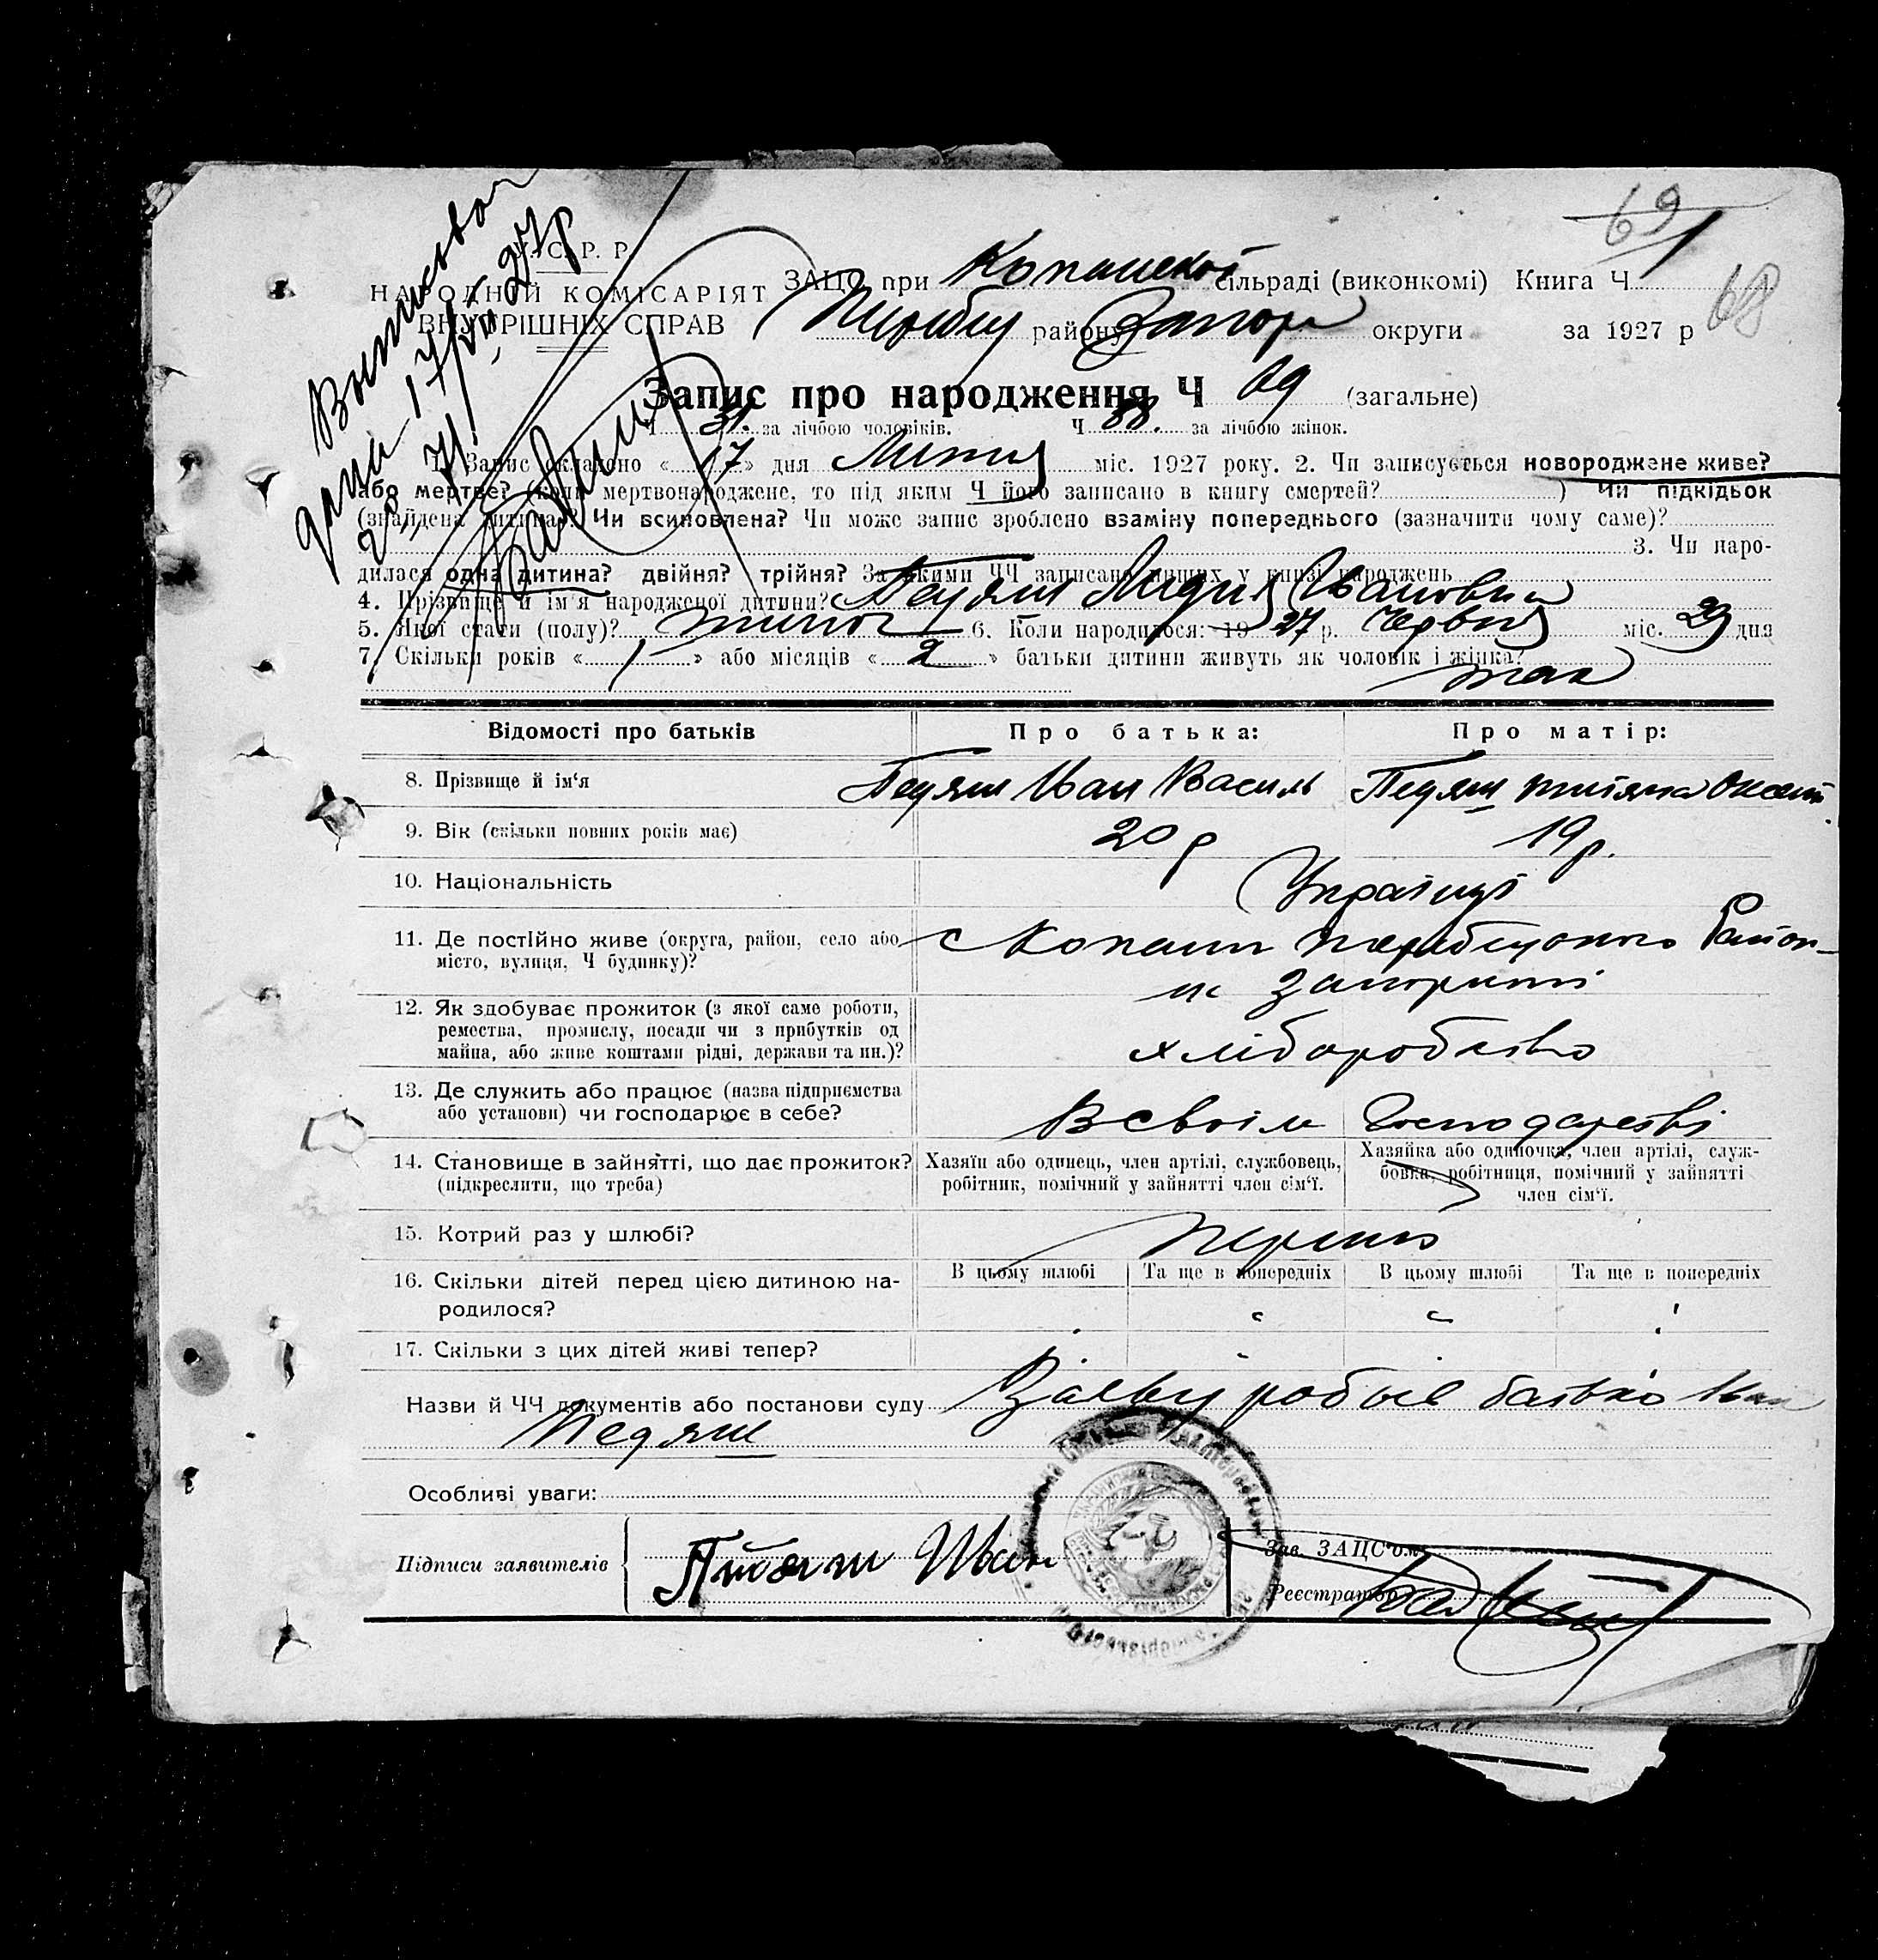 69
68
У. С. Р. Р.
НАРОДНІЙ КОМІСАРІЯТ
ВНУТРІШНІХ СПРАВ
ЗАЦС при Копанській сільраді (виконкомі) Книга Ч 1
району Запор округи за 1927 р
Запис про народження Ч 69 (загальне)
Ч 31. за лічбою чоловіків. Ч 38. за лічбою жінок.
1. Запис складено « 17 » дня Липня міс. 1927 року. 2. Чи записується новороджене живе?
або мертве? (коли мертвонароджене, то під яким Ч його записано в книгу смертей? ) Чи підкідьок
(знайдена дитина)? Чи всиновлена? Чи може запис зроблено взаміну попереднього (зазначити чому саме)?
3. Чи наро-
дилася одна дитина? двійня? трійня? За якими ЧЧ записано инших у книзі народжень
4. Прізвище й ім'я народженої дитини? Педяш Лидия Івановна
5. Якої стати (полу)? жиноч 6. Коли народилося: 19 27 р. Червня міс. 29 дня
7. Скільки років « / » або місяців « 2 » батьки дитини живуть як чоловік і жінка?
так
Відомості про батьків Про батька: Про матір:
8. Прізвище й ім'я Педяш Иван Василь Педяш
9. Вік (скільки повних років має) 20 р 19 р.
10. Національність Українці
11. Де постійно живе (округа, район, село або с Копани Район
місто, вулиця, Ч будинку)?
12. Як здобуває прожиток (з якої саме роботи,
ремества, промислу, посади чи з прибутків од
майна, або живе коштами рідні, держави та ин.)? хліборобство
13. Де служить або працює (назва підприємства
або установи) чи господарює в себе? В своїм Господарстві
14. Становище в зайнятті, що дає прожиток? Хазяїн або одинець, член артілі, службовець, Хазяйка або одиночка, член артілі, служ-
(підкреслити, що треба) робітник, помічний у зайнятті член сім'ї. бовка, робітниця, помічний у зайнятті
член сім'ї.
15. Котрий раз у шлюбі?
16. Скільки дітей перед цією дитиною на- В цьому шлюбі Та ще в попередніх В цьому шлюбі Та ще в попередніх
родилося?
17. Скільки з цих дітей живі тепер?
Назви й ЧЧ документів або постанови суду Заяву робыв батько Иван
Педяш
Особливі уваги:
Підписи заявителів Иван Зав. ЗАЦС'ом
Реєстратор